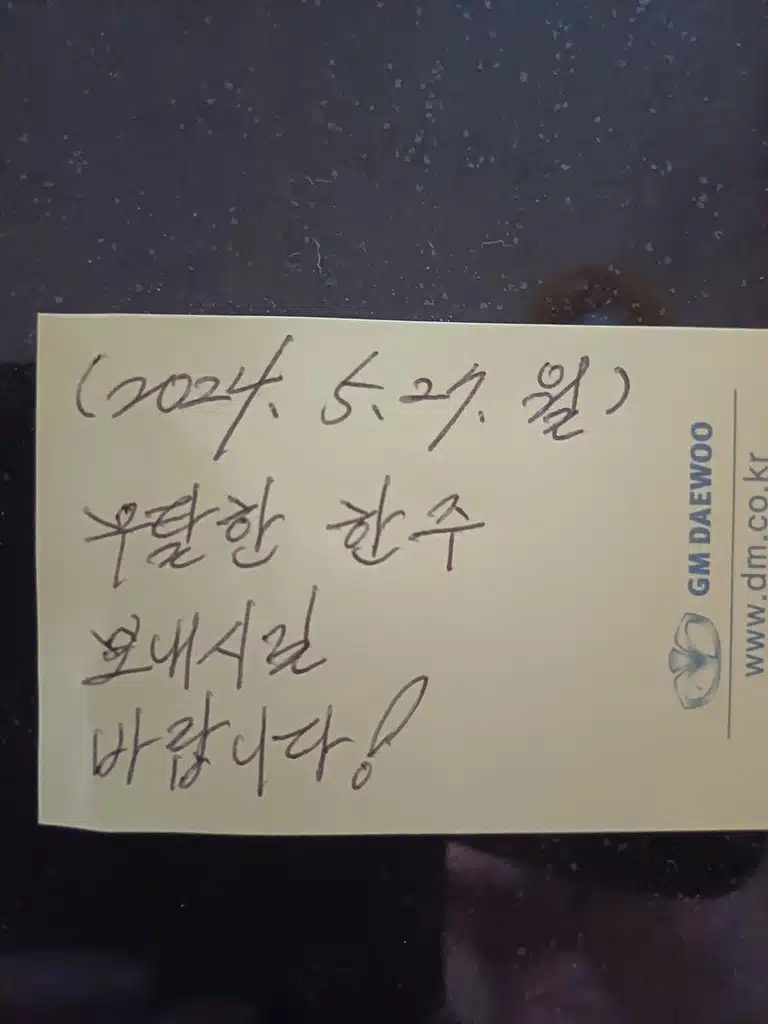 (2024. 5. 27. 월)
무탈한 한주
보내시길
바랍니다!
GM DAEWOO
www.dm.co.kr